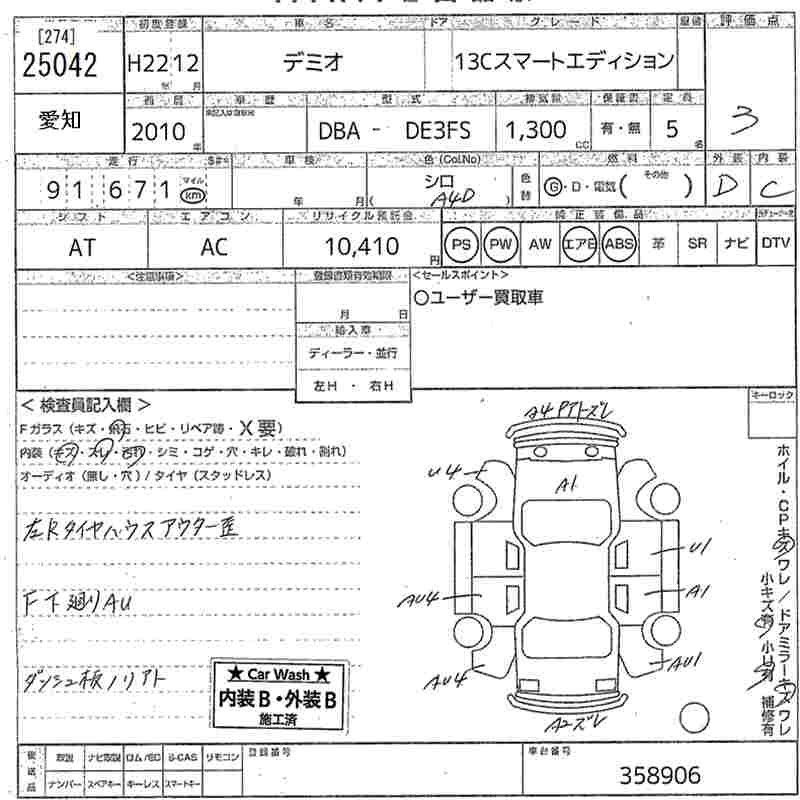 [274]
25042
初度登録
車名
ドア
グレード
評価点
H22 12
年
月
デミオ
13Cスマートエディション
愛知
車歴
型式
排気量
保証書
定員
3
2010
年
DBA - DE3FS
1,300
CC
有・無
5
名
走行
車検
色(Col.No)
燃料
外装
内装
91671
マイル
km
年
月
シロ
A4D
色替
G・D・電気(その他)
D
C
シフト
エアコン
リサイクル預託金
純正装備品
AT
AC
10,410
円
PS
PW
AW
エアB
ABS
革
SR
ナビ
DTV
<注意事項>
登録書類有効期限
<セールスポイント>
月
日
○ユーザー買取車
輸入車
ディーラー・並行
左H・右H
<検査員記入欄>
キーロック
Fガラス(キズ・飛石・ヒビ・リペア跡・X要)
内装(キズ・スレ・汚れ・シミ・コゲ・穴・キレ・破れ・割れ)
オーディオ(無し・穴)/タイヤ(スタッドレス)
左Rタイヤハウスアウター歪
F下廻りAU
ダッシュ板ノリアト
A4 PTトズレ
U4
A1
U1
AU4
A1
AU4
AU1
A2ズレ
ホイル・CPキズワレ/ドアミラーキズワレ
小キズ有/小U有 補修有
★ Car Wash ★
内装B・外装B
施工済
後送品
取説
ナビ取説
ロム/CD
B-CAS
リモコン
登録番号
車台番号
ナンバー
スペアキー
キーレス
スマートキー
358906